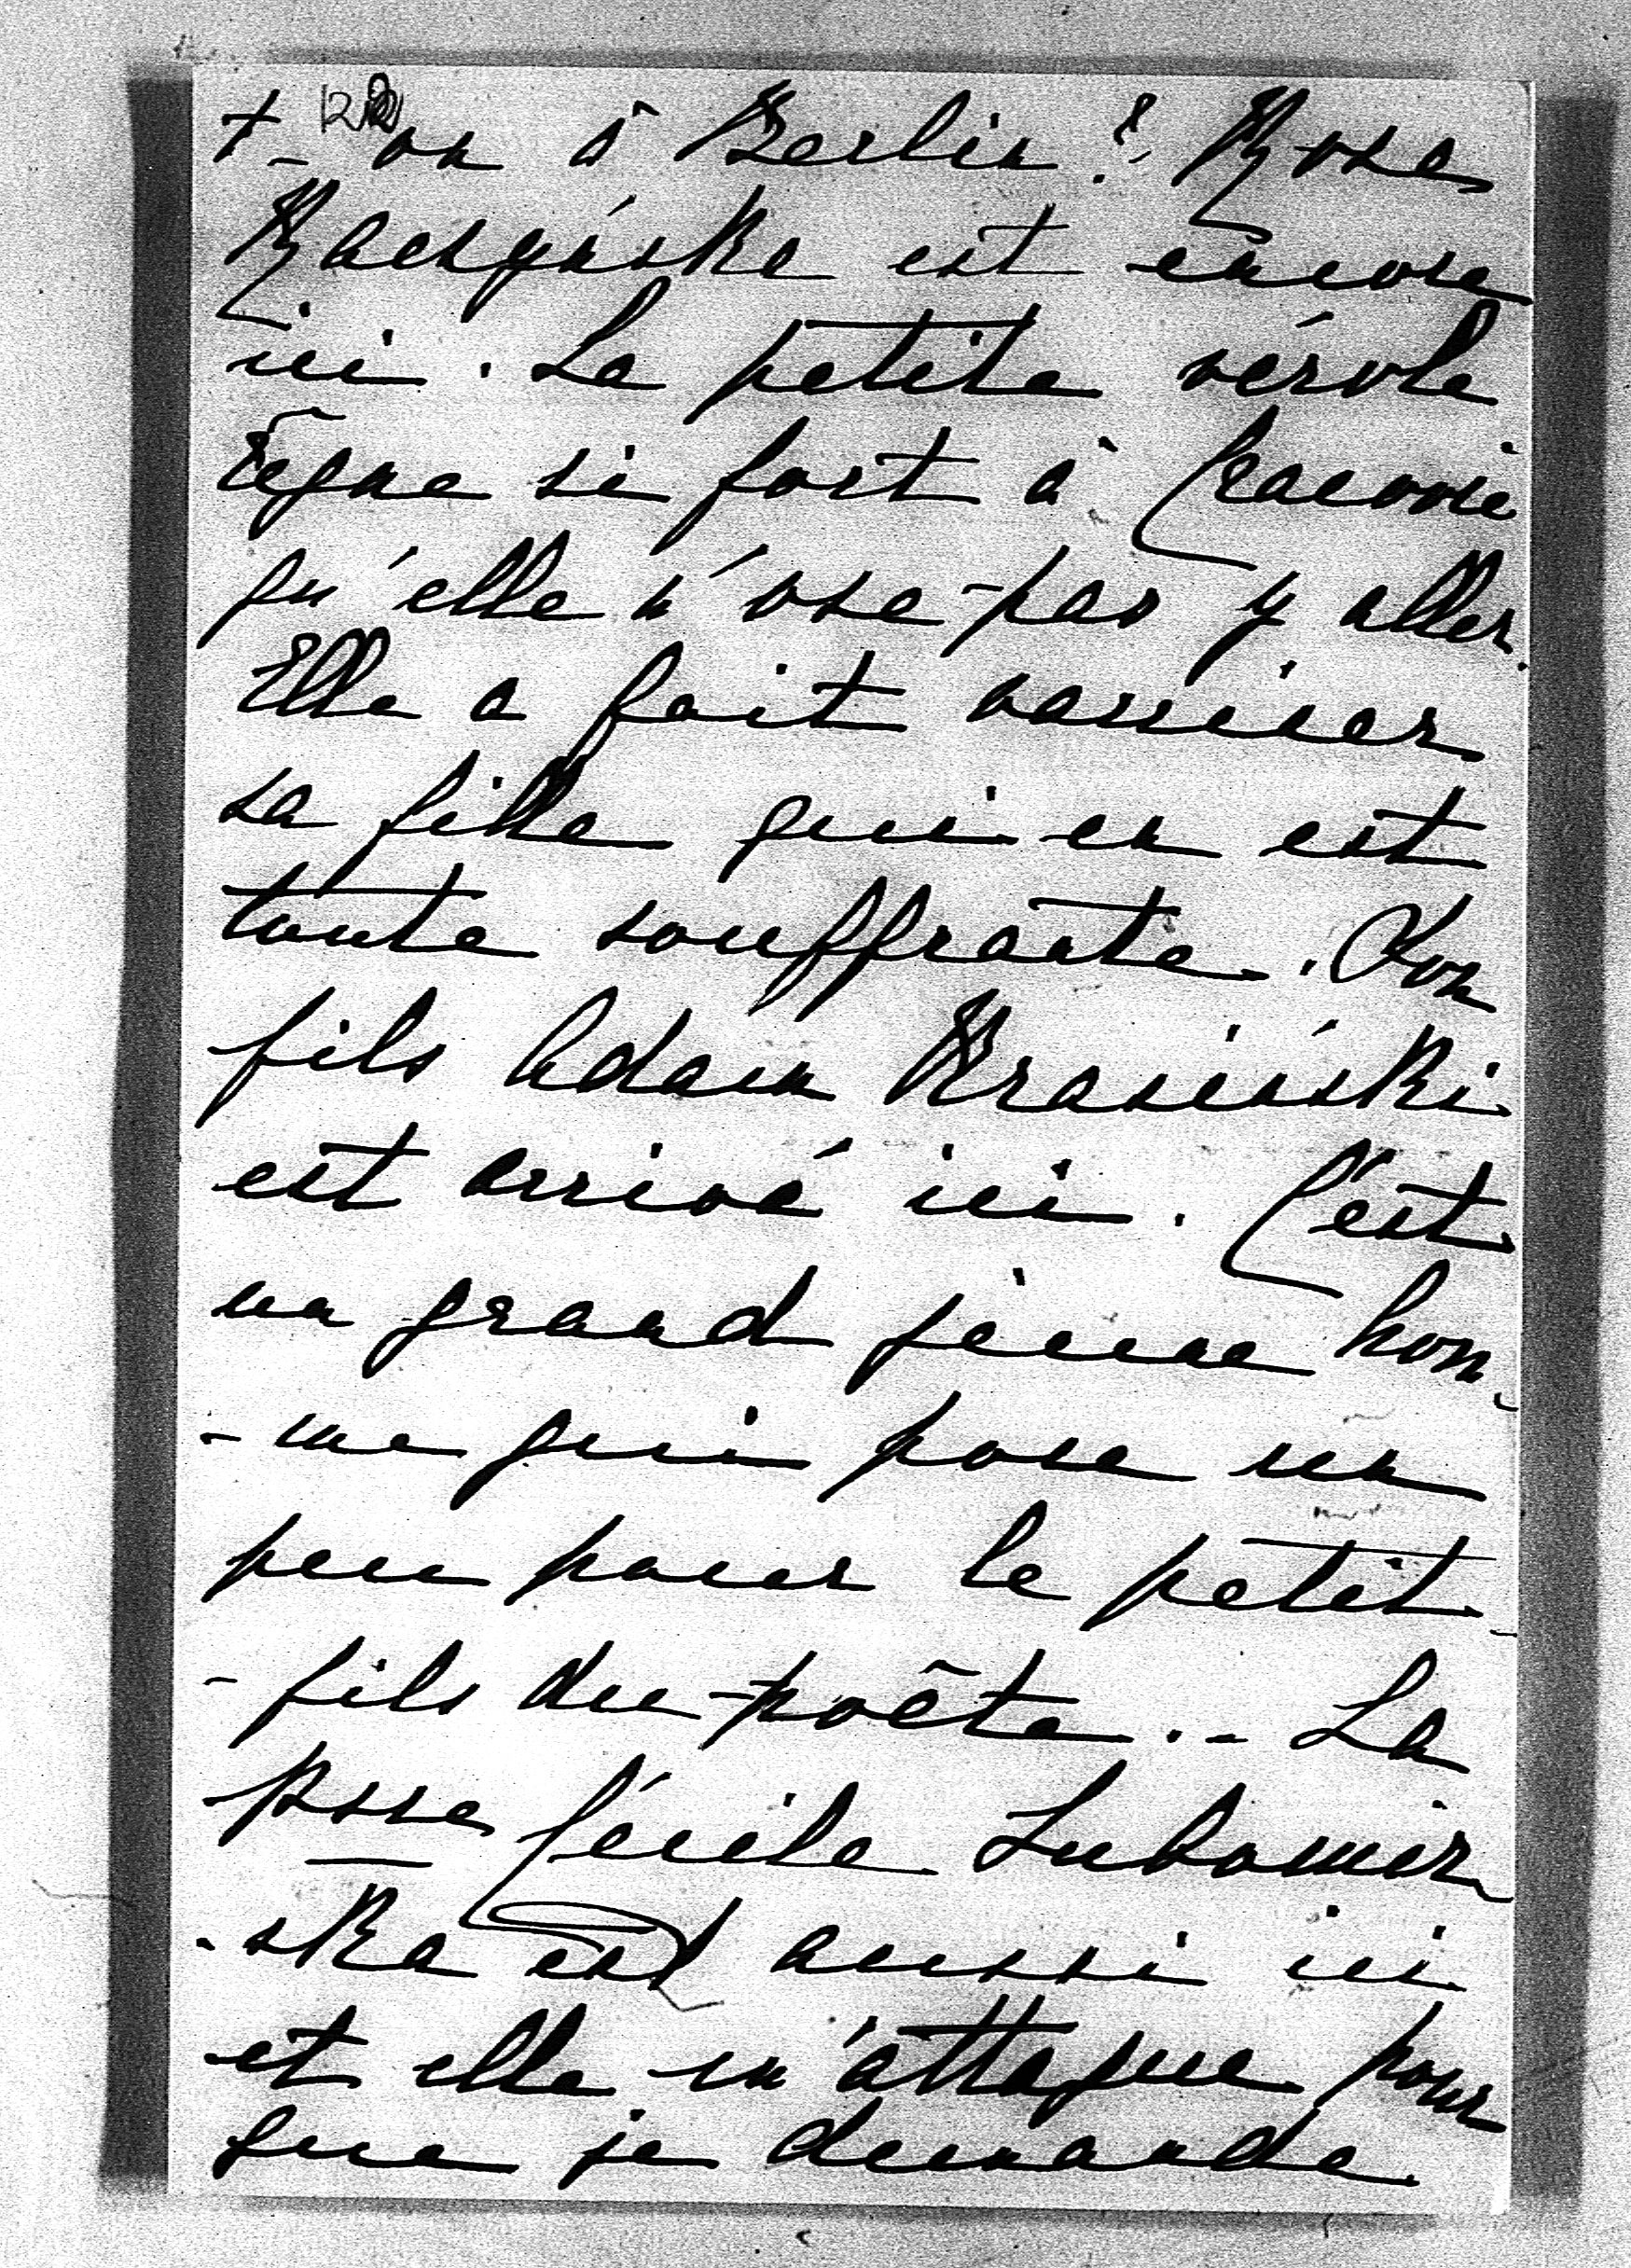 t-on à Berlin? Rose
Raczyńska est encore
ici. La petite vérole
règne si fort à Cracovie
qu'elle n'ose pas y aller.
Elle a fait vacciner
sa fille qui en est
toute souffrante. Son
fils Adam Krasiński
est arrivé ici. C'est
un grand jeune hom-
-me qui pose un
peu pour le petit-
-fils du poête.. La
psse Cécile Lubomir-
-ska est aussi ici
et elle m'attaque pour
que je demande